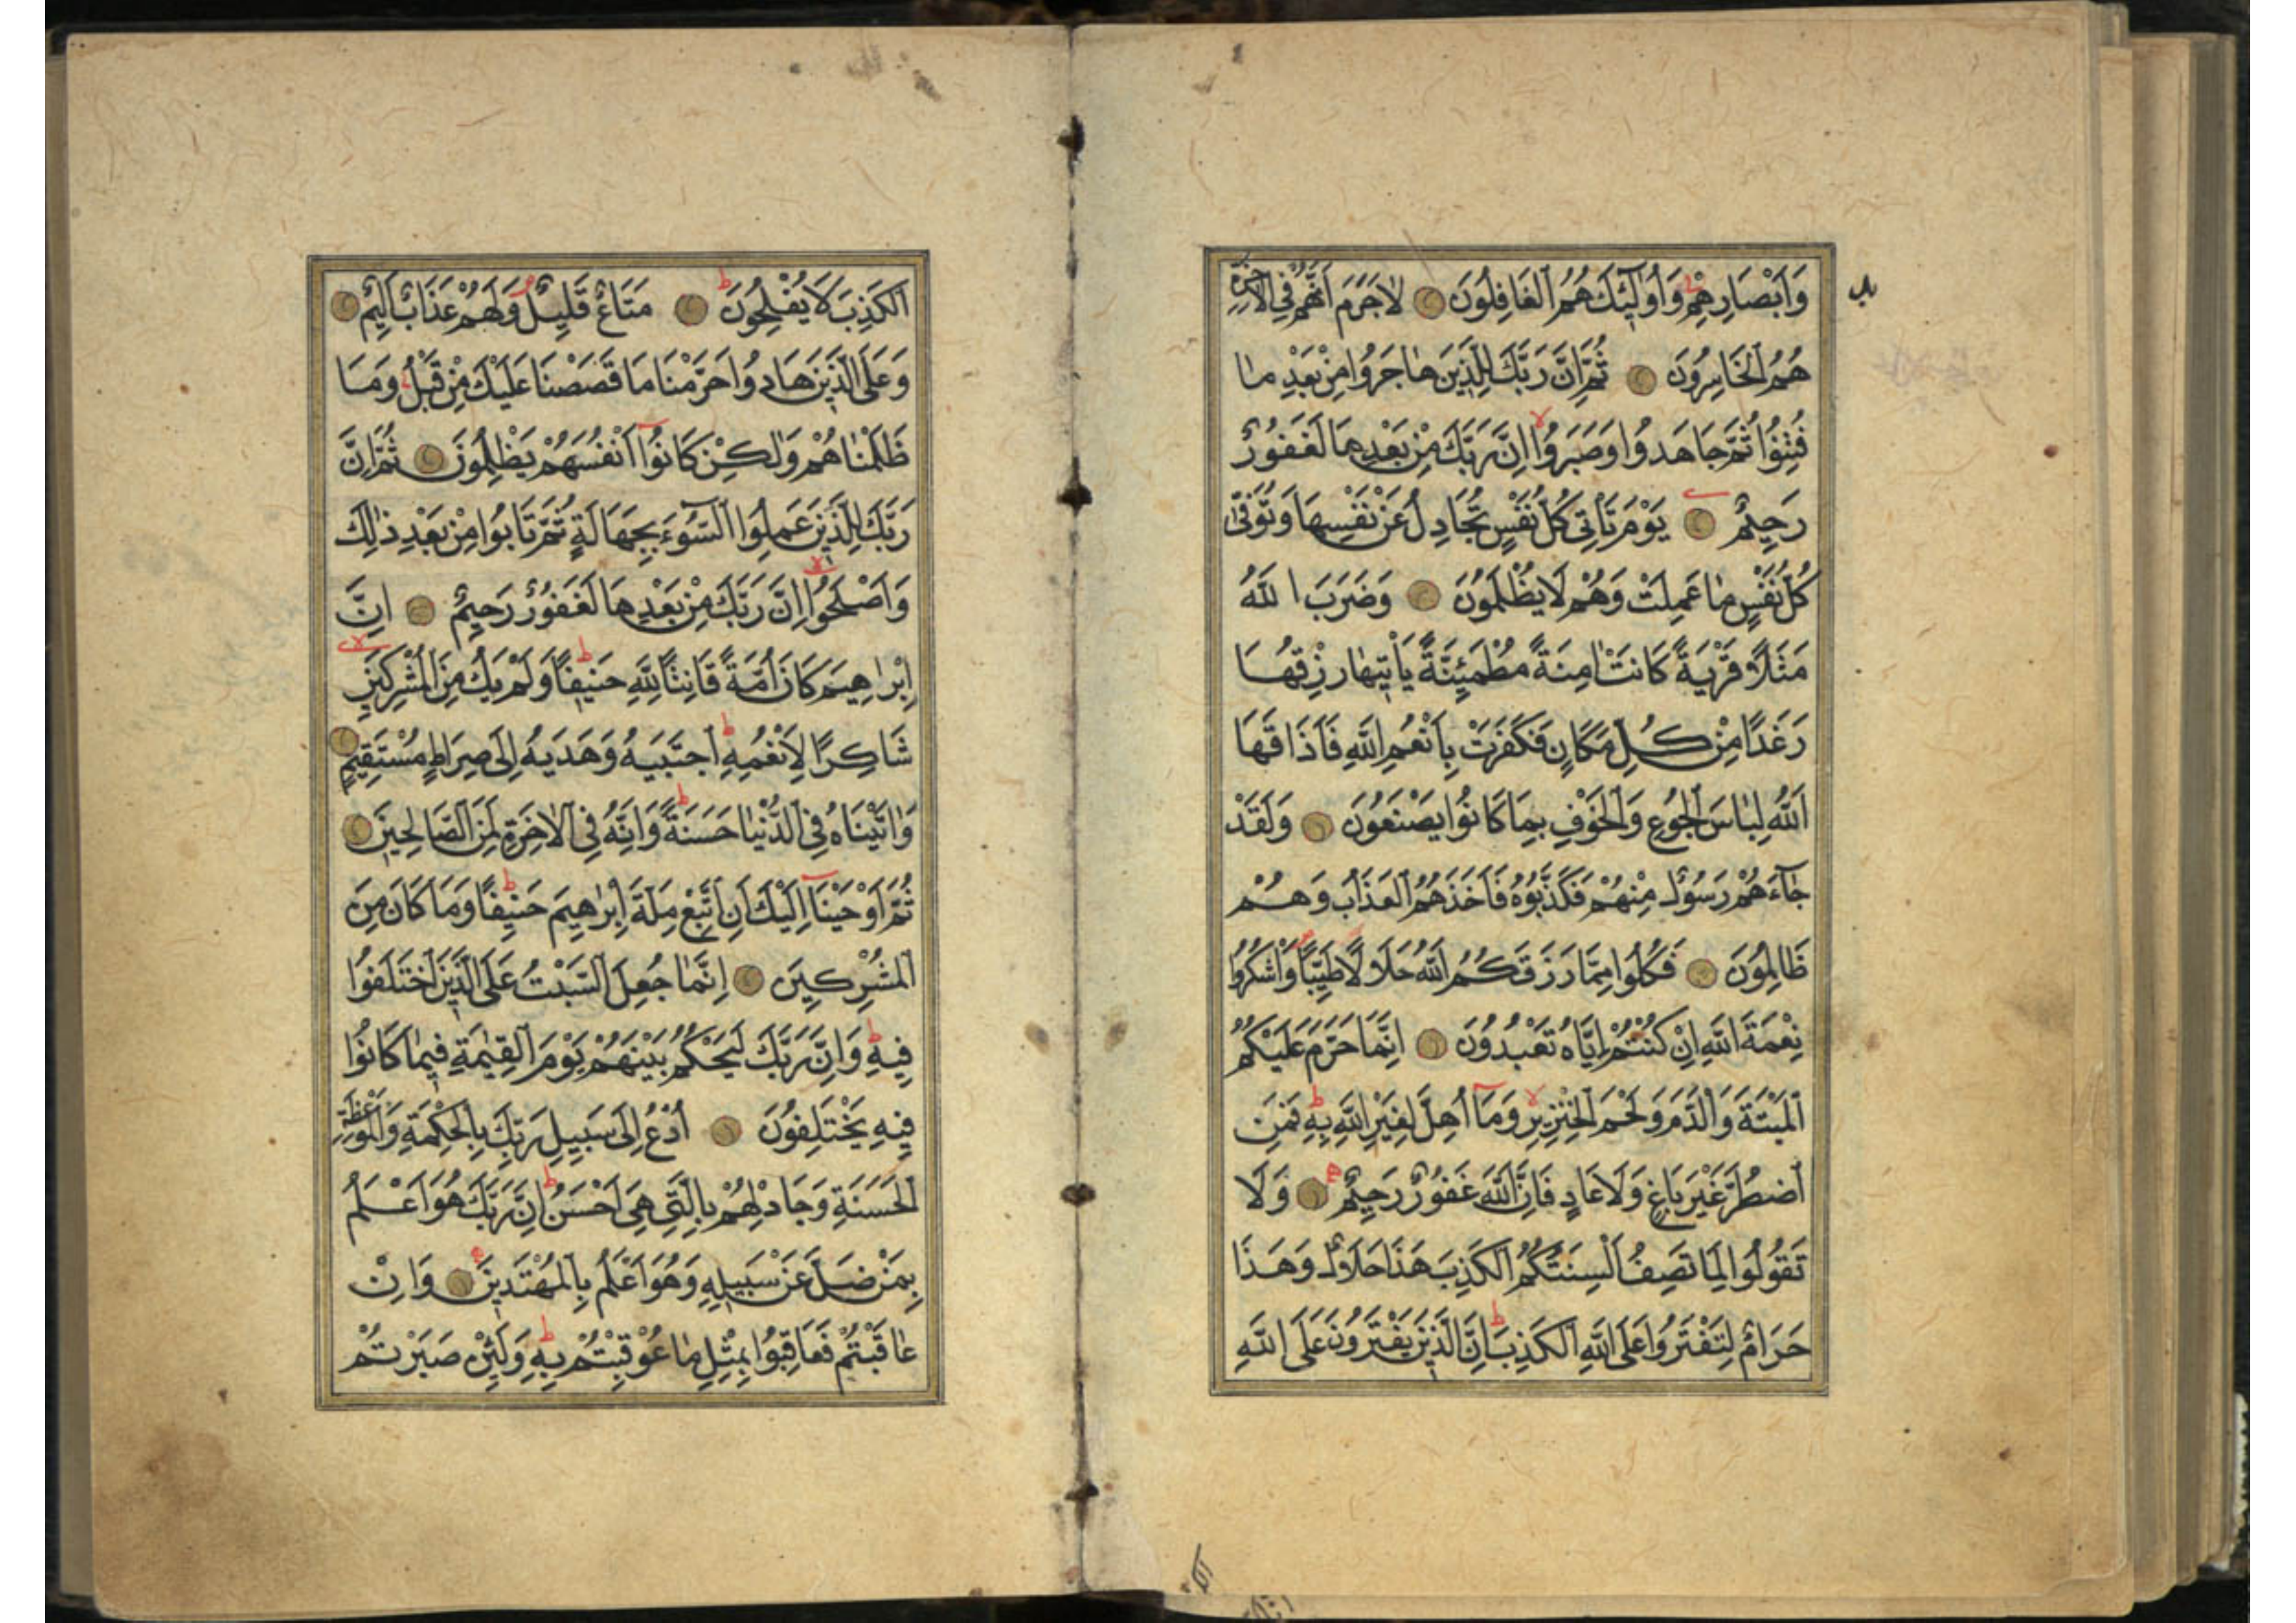 وَاَبْصَارِهِمْ وَاُولٰٓئِكَ هُمُ الْغَافِلُونَ لَاجَرَمَ اَنَّهُمْ فِي الْاٰخِرَةِ
هُمُ الْخَاسِرُونَ ثُمَّ اِنَّ رَبَّكَ لِلَّذِينَ هَاجَرُوا مِنْ بَعْدِ مَا
فُتِنُوا ثُمَّ جَاهَدُوا وَصَبَرُوا اِنَّ رَبَّكَ مِنْ بَعْدِهَا لَغَفُورٌ
رَحِيمٌ يَوْمَ تَأْتِي كُلُّ نَفْسٍ تُجَادِلُ عَنْ نَفْسِهَا وَتُوَفّٰى
كُلُّ نَفْسٍ مَا عَمِلَتْ وَهُمْ لَا يُظْلَمُونَ وَضَرَبَ اللّٰهُ
مَثَلًا قَرْيَةً كَانَتْ اٰمِنَةً مُطْمَئِنَّةً يَأْتِيهَا رِزْقُهَا
رَغَدًا مِنْ كُلِّ مَكَانٍ فَكَفَرَتْ بِاَنْعُمِ اللّٰهِ فَاَذَاقَهَا
اللّٰهُ لِبَاسَ الْجُوعِ وَالْخَوْفِ بِمَا كَانُوا يَصْنَعُونَ وَلَقَدْ
جَآءَهُمْ رَسُولٌ مِنْهُمْ فَكَذَّبُوهُ فَاَخَذَهُمُ الْعَذَابُ وَهُمْ
ظَالِمُونَ فَكُلُوا مِمَّا رَزَقَكُمُ اللّٰهُ حَلَالًا طَيِّبًا وَاشْكُرُوا
نِعْمَةَ اللّٰهِ اِنْ كُنْتُمْ اِيَّاهُ تَعْبُدُونَ اِنَّمَا حَرَّمَ عَلَيْكُمُ
الْمَيْتَةَ وَالدَّمَ وَلَحْمَ الْخِنْزِيرِ وَمَآ اُهِلَّ لِغَيْرِ اللّٰهِ بِهِ فَمَنِ
اضْطُرَّ غَيْرَ بَاغٍ وَلَا عَادٍ فَاِنَّ اللّٰهَ غَفُورٌ رَحِيمٌ وَلَا
تَقُولُوا لِمَا تَصِفُ اَلْسِنَتُكُمُ الْكَذِبَ هَذَا حَلَالٌ وَهَذَا
حَرَامٌ لِتَفْتَرُوا عَلَى اللّٰهِ الْكَذِبَ اِنَّ الَّذِينَ يَفْتَرُونَ عَلَى اللّٰهِ
الْكَذِبَ لَا يُفْلِحُونَ مَتَاعٌ قَلِيلٌ وَلَهُمْ عَذَابٌ اَلِيمٌ
وَعَلَى الَّذِينَ هَادُوا حَرَّمْنَا مَا قَصَصْنَا عَلَيْكَ مِنْ قَبْلُ وَمَا
ظَلَمْنَاهُمْ وَلٰكِنْ كَانُوٓا اَنْفُسَهُمْ يَظْلِمُونَ ثُمَّ اِنَّ
رَبَّكَ لِلَّذِينَ عَمِلُوا السُّوٓءَ بِجَهَالَةٍ ثُمَّ تَابُوا مِنْ بَعْدِ ذٰلِكَ
وَاَصْلَحُوا اِنَّ رَبَّكَ مِنْ بَعْدِهَا لَغَفُورٌ رَحِيمٌ اِنَّ
اِبْرٰاهِيمَ كَانَ اُمَّةً قَانِتًا لِلّٰهِ حَنِيفًا وَلَمْ يَكُ مِنَ الْمُشْرِكِينَ
شَاكِرًا لِاَنْعُمِهِ اِجْتَبَيهُ وَهَدَيهُ اِلَى صِرَاطٍ مُسْتَقِيمٍ
وَاٰتَيْنَاهُ فِي الدُّنْيَا حَسَنَةً وَاِنَّهُ فِي الْاٰخِرَةِ لَمِنَ الصَّالِحِينَ
ثُمَّ اَوْحَيْنَآ اِلَيْكَ اَنِ اتَّبِعْ مِلَّةَ اِبْرٰهِيمَ حَنِيفًا وَمَا كَانَ مِنَ
الْمُشْرِكِينَ اِنَّمَا جُعِلَ السَّبْتُ عَلَى الَّذِينَ اخْتَلَفُوا
فِيهِ وَاِنَّ رَبَّكَ لَيَحْكُمُ بَيْنَهُمْ يَوْمَ الْقِيٰمَةِ فِيمَا كَانُوا
فِيهِ يَخْتَلِفُونَ اُدْعُ اِلَى سَبِيلِ رَبِّكَ بِالْحِكْمَةِ وَالْمَوْعِظَةِ
الْحَسَنَةِ وَجَادِلْهُمْ بِالَّتِي هِيَ اَحْسَنُ اِنَّ رَبَّكَ هُوَ اَعْلَمُ
بِمَنْ ضَلَّ عَنْ سَبِيلِهِ وَهُوَ اَعْلَمُ بِالْمُهْتَدِينَ وَاِنْ
عَاقَبْتُمْ فَعَاقِبُوا بِمِثْلِ مَا عُوقِبْتُمْ بِهِ وَلَئِنْ صَبَرْتُمْ